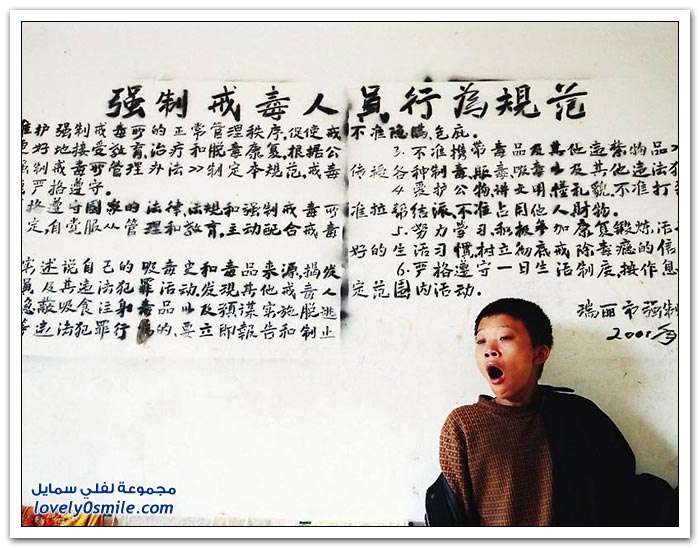 强制戒毒人員行為規范
维护强制戒毒所的正常管理秩序,促使戒
更好地接受教育,治疗和脱毒康复,根据公
强制戒毒所管理办法》制定本规范,戒毒
严格遵守。
格遵守國家的法律,法规和强制戒毒所
定,自觉服从管理和教育,主动配合戒毒
实述说自己的吸毒史和毒品来源,揭发
員及其违法犯罪活动,发現其他戒毒人
隐敝吸食注射毒品以及預谋实施脱逃
等违法犯罪行爲的,要立即報告和制止
不准隐瞒,包庇。
3、不准携带毒品及其他违禁物品,
传授各种制毒、贩毒、吸毒以及其他违法犯
4、爱护公物,讲文明懂礼貌,不准打
准拉帮结派,不准占用他人財物。
5、努力学习,积极参加康复鍛炼,活
好的生活习慣,树立彻底戒除毒瘾的信
6、严格遵守一日生活制度,按作息
定范围内活动。
瑞丽市强制
2001年
مجموعة لفلي سمايل
lovely0smile.com